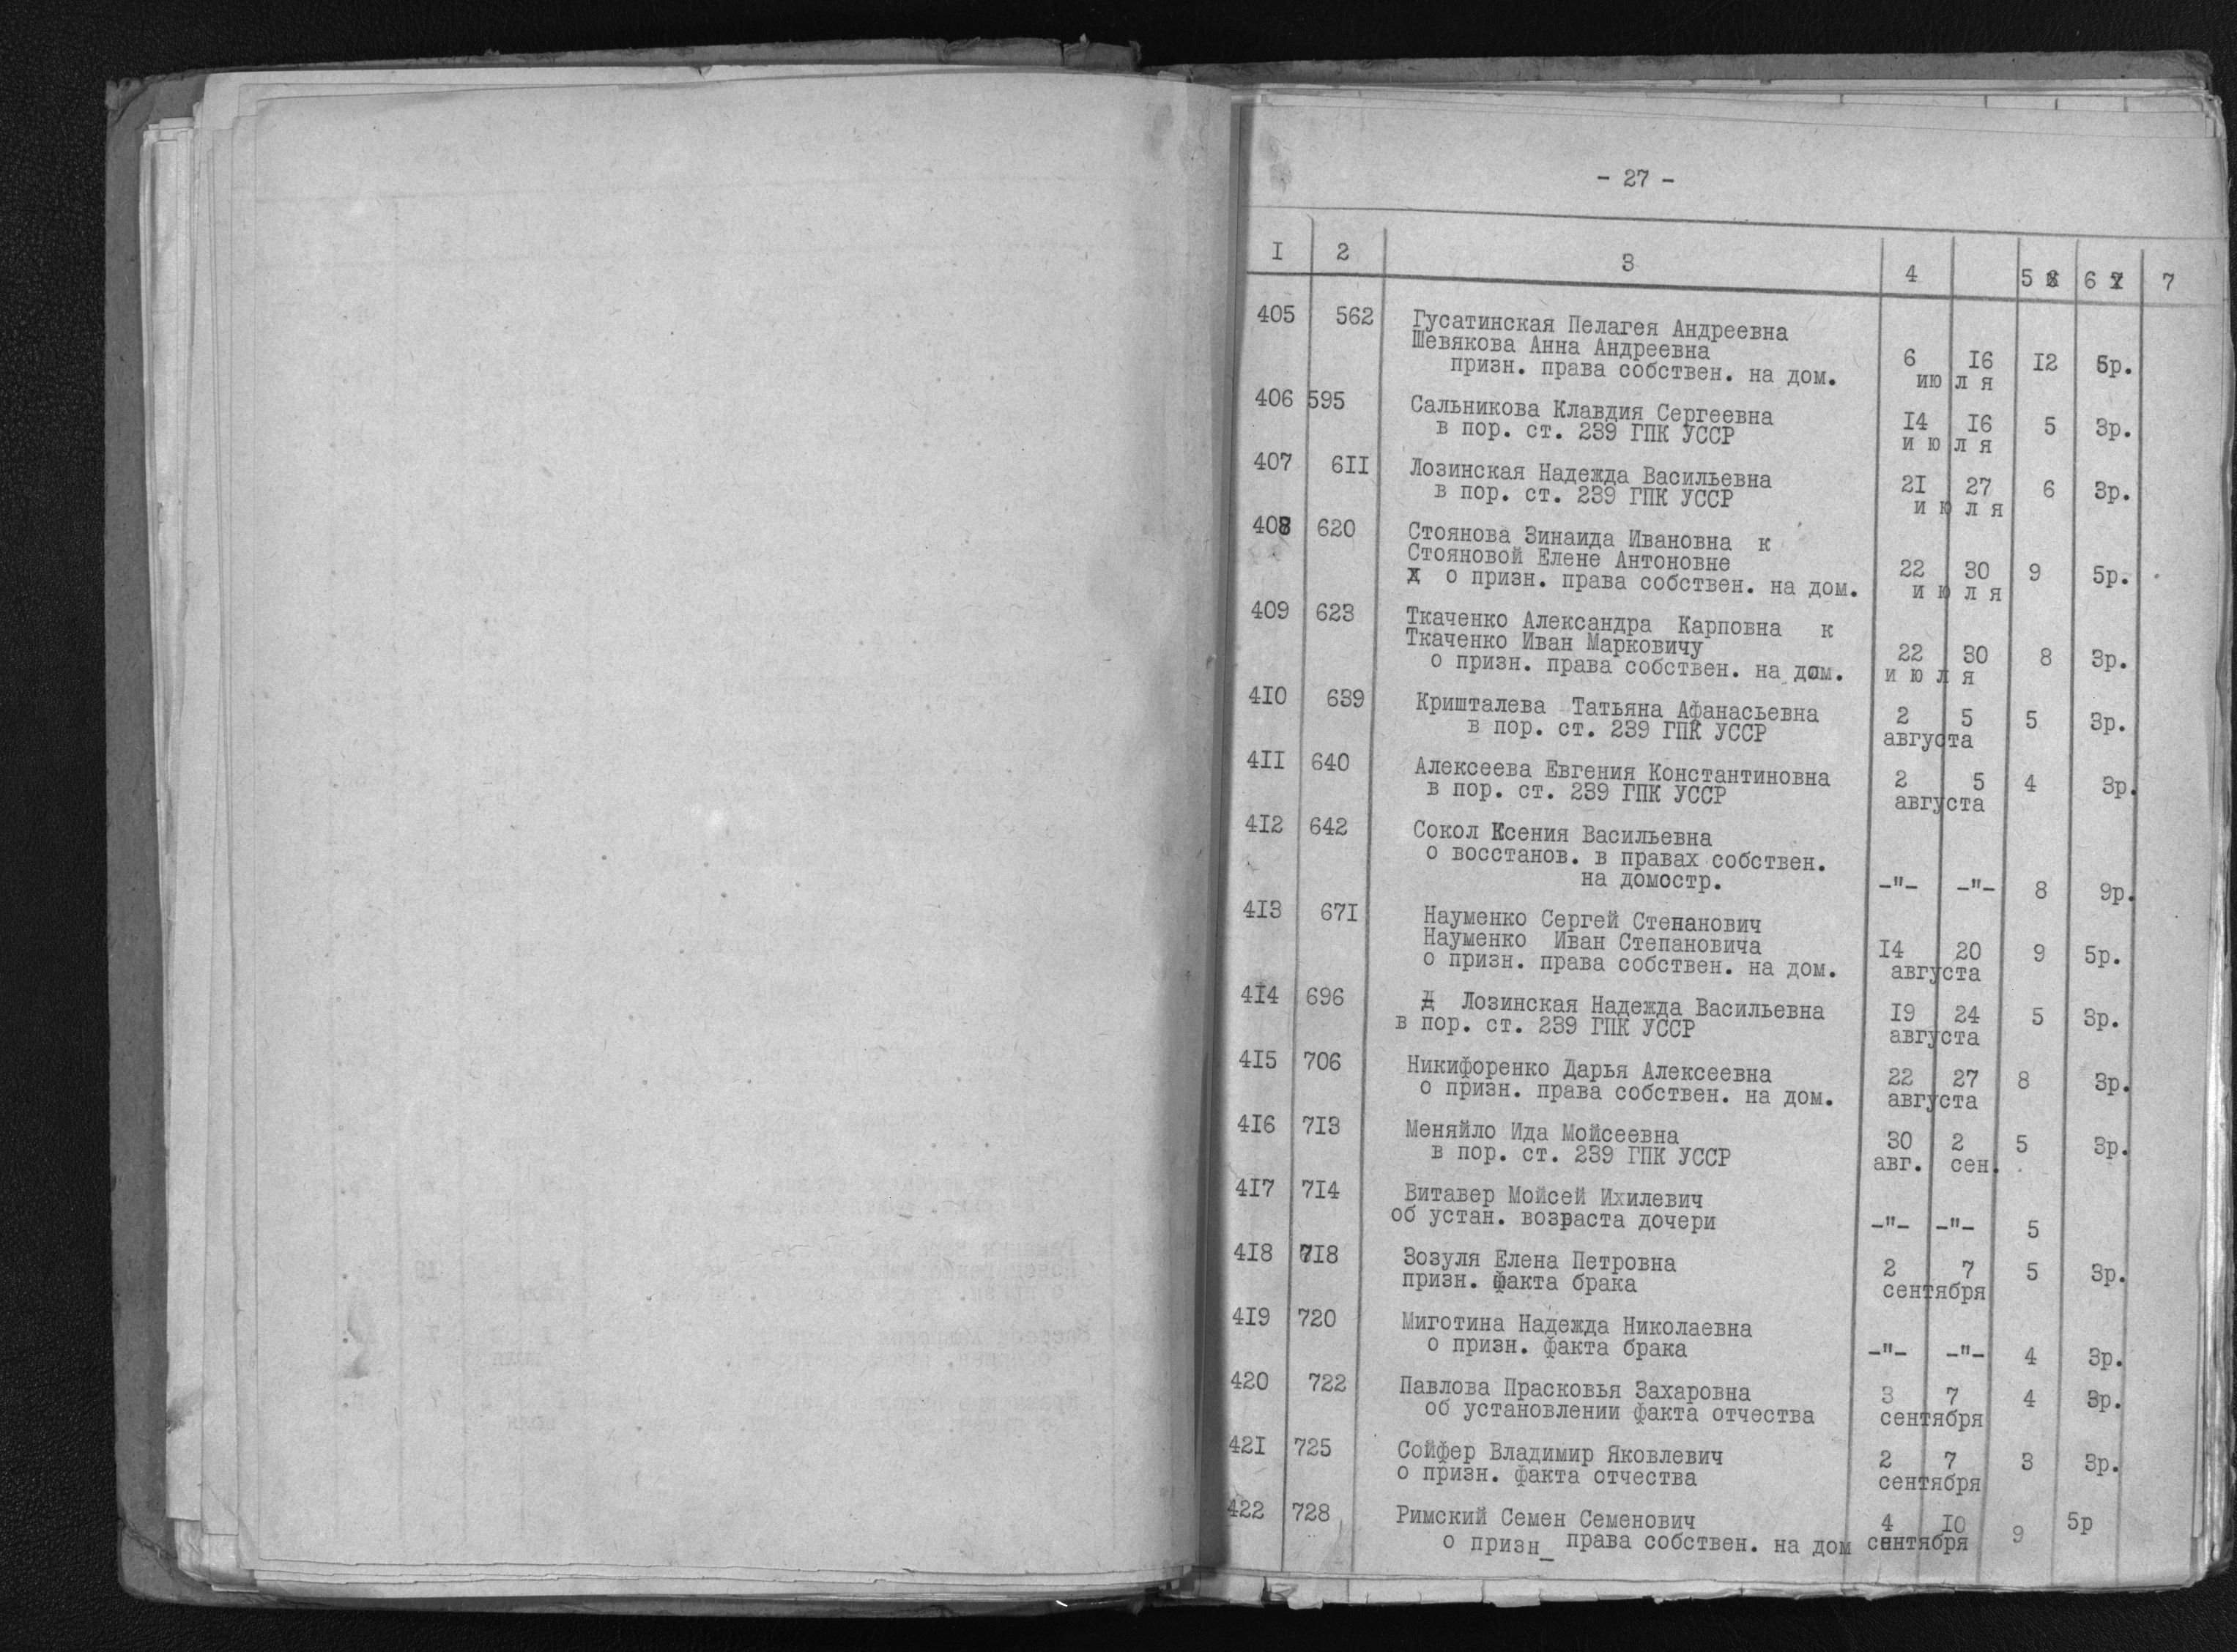 - 27 -
I 2 3 4 5 6 7
405 562 Гусатинская Пелагея Андреевна
Шевякова Анна Андреевна
призн. права собствен. на дом. 6 I6 I2 5р.
ию л я
406 595 Сальникова Клавдия Сергеевна
в пор. ст. 239 ГПК УССР I4 I6 5 3р.
и ю л я
407 6II Лозинская Надежда Васильевна
в пор. ст. 239 ГПК УССР 2I 27 6 3р.
и ю л я
408 620 Стоянова Зинаида Ивановна к
Стояновой Елене Антоновне
о призн. права собствен. на дом. 22 30 9 5р.
и ю л я
409 623 Ткаченко Александра Карповна к
Ткаченко Иван Марковичу
о призн. права собствен. на дом. 22 30 8 3р.
и ю л я
4I0 639 Кришталева Татьяна Афанасьевна
в пор. ст. 239 ГПК УССР 2 5 5 3р.
августа
4II 640 Алексеева Евгения Константиновна
в пор. ст. 239 ГПК УССР 2 5 4 3р.
августа
4I2 642 Сокол Ксения Васильевна
о восстанов. в правах собствен.
на домостр. -"- -"- 8 9р.
4I3 67I Науменко Сергей Стенанович
Науменко Иван Степановича
о призн. права собствен. на дом. I4 20 9 5р.
августа
4I4 696 Лозинская Надежда Васильевна
в пор. ст. 239 ГПК УССР I9 24 5 3р.
августа
4I5 706 Никифоренко Дарья Алексеевна
о призн. права собствен. на дом. 22 27 8 3р.
августа
4I6 7I3 Меняйло Ида Мойсеевна
в пор. ст. 239 ГПК УССР 30 2 5 3р.
авг. сен.
4I7 7I4 Витавер Мойсей Ихилевич
об устан. возраста дочери -"- -"- 5
4I8 7I8 Зозуля Елена Петровна
призн. факта брака 2 7 5 3р.
сентября
4I9 720 Миготина Надежда Николаевна
о призн. факта брака -"- -"- 4 3р.
420 722 Павлова Прасковья Захаровна
об установлении факта отчества 3 7 4 3р.
сентября
42I 725 Сойфер Владимир Яковлевич
о призн. факта отчества 2 7 3 3р.
сентября
422 728 Римский Семен Семенович 4 I0 9 5р
о призн_ права собствен. на дом сентября